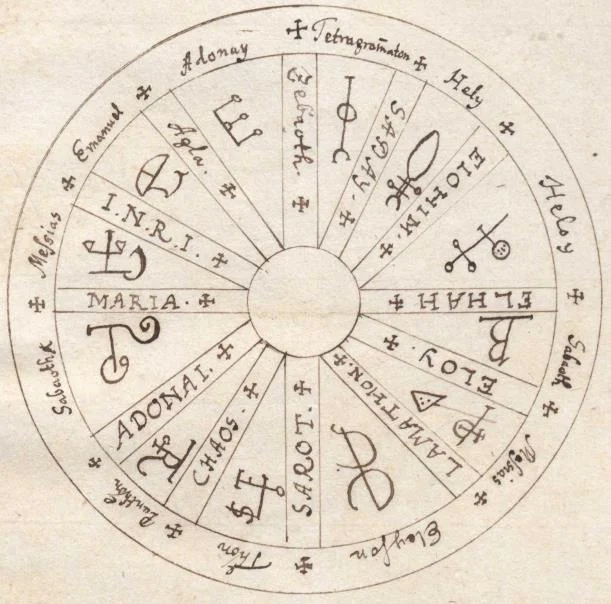 ✠ Tetragram̄aton ✠
Hely ✠
Heloy ✠
Sabaoth ✠
Messias ✠
Eleyson ✠
Thon ✠
Panthon ✠
Sabaoth ✠
Messias ✠
Emanuel ✠
Adonay
Zebaoth. ✠
SADAY. ✠
ELOHIM. ✠
ELHAH ✠
ELOY. ✠
LAMATHON. ✠
SAROT. ✠
CHAOS. ✠
ADONAI. ✠
MARIA. ✠
I.N.R.I. ✠
Agla. ✠